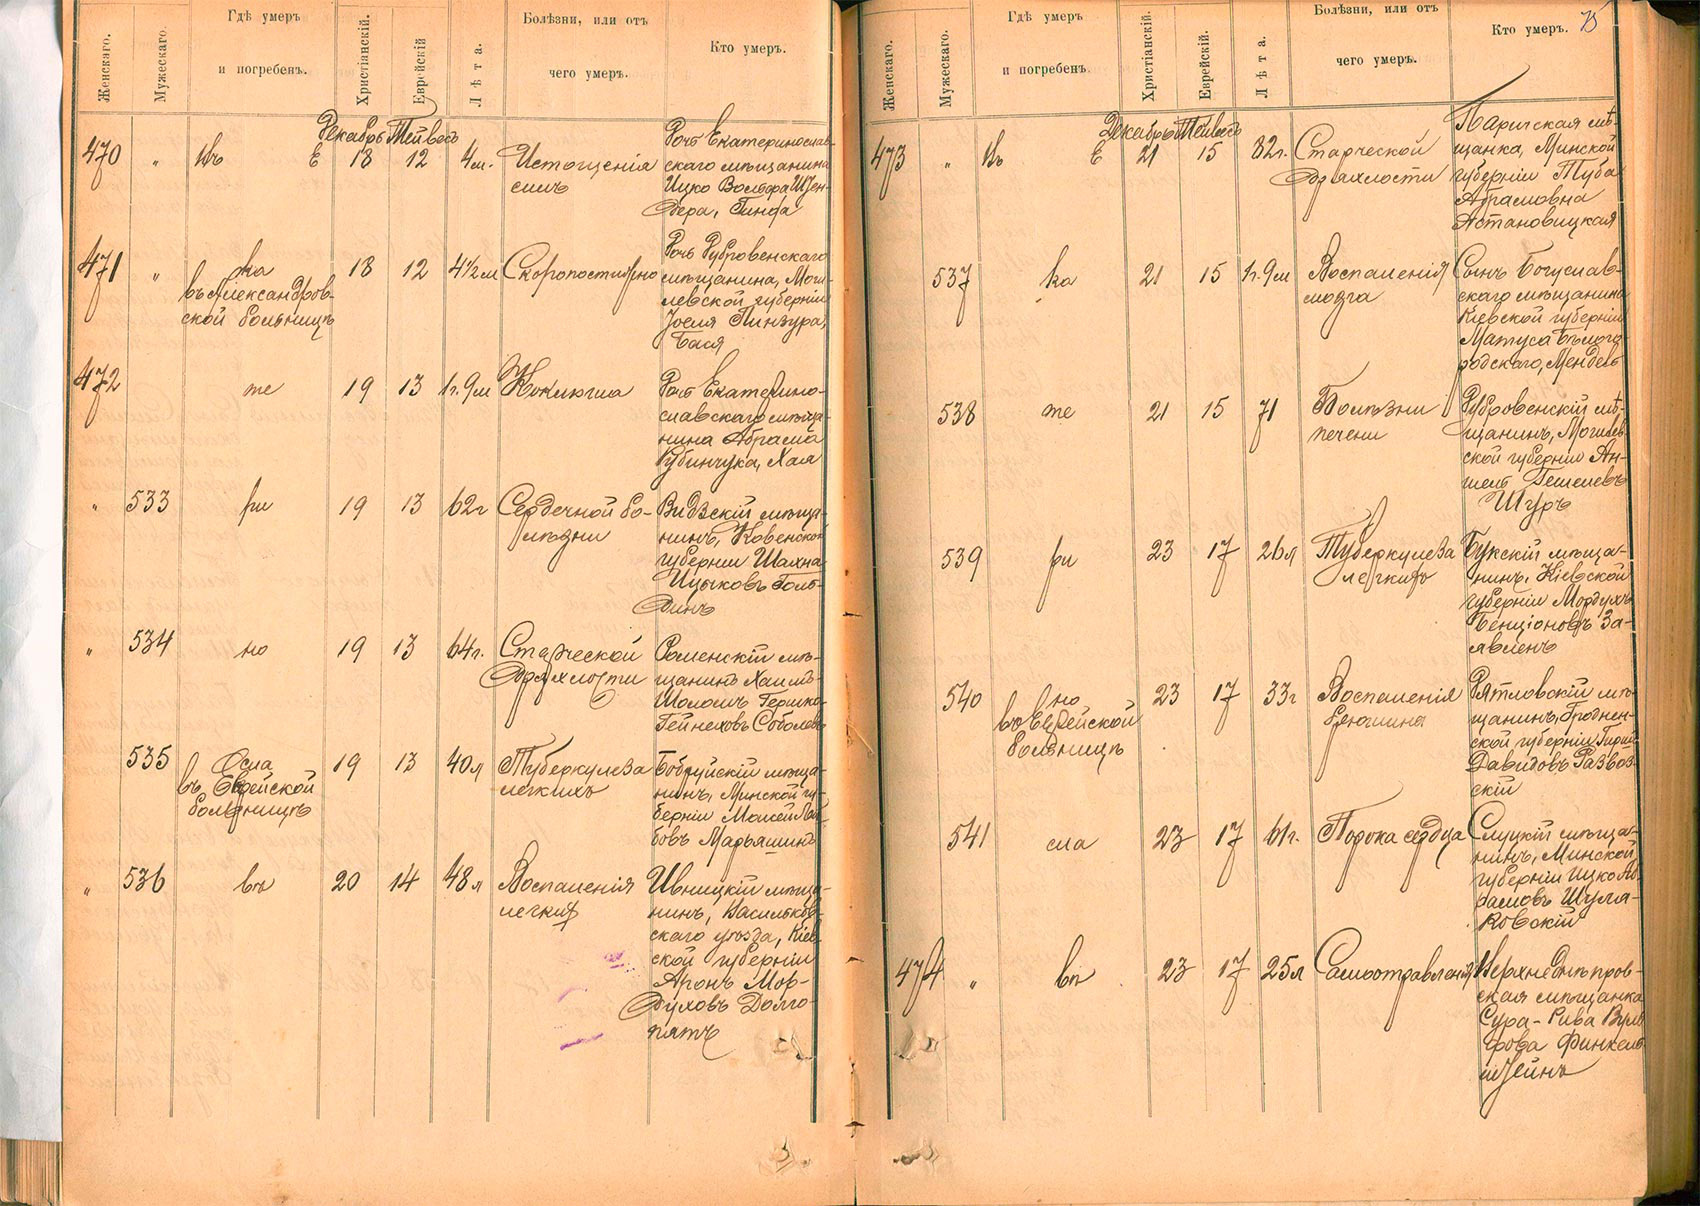 Женскаго.
Мужескаго.
Гдѣ умеръ
и погребенъ.
Христіанскій.
Еврейскій
Лѣта.
Болѣзни, или отъ
чего умеръ.
Кто умеръ.
Декабрь Тейвесъ
470 „ Въ Е 18 12 4м. Истощенія
силъ
Дочь Екатеринослав-
скаго мѣщанина
Ицко Вольфа
471 „ ка
въ Александров-
ской больницѣ
18 12 4½м Скоропостижно
Дочь Дубровенскаго
мѣщанина, Моги-
левской губерніи
Іоселя Пинзура,
Бася
472 те 19 13 1г.9м Коклюша
Дочь Екатерино-
славскаго мѣща-
нина Абрама
Рубинчука, Хая
„ 533 ри 19 13 62г Сердечной бо-
лѣзни
Видзскій мѣща-
нинъ, Ковенской
губерніи Шахна
Ицыковъ Голь-
динъ
„ 534 но 19 13 64г. Старческой
дряхлости
Роменскій мѣ-
щанинъ Хаимъ-
Шоломъ Гершко-
Гейнеховъ Соболевъ
535 Осла
въ Еврейской
больницѣ
19 13 40л Туберкулеза
легкихъ
Бобруйскій мѣща-
нинъ, Минской гу-
берніи Мовсей Лей-
бовъ Марьяшинъ
„ 536 въ 20 14 48л Воспаленія
легкихъ
Ивницкій мѣща-
нинъ, Васильков-
скаго уѣзда, Кіев-
ской губерніи
Аронъ Мор-
духовъ Долго-
пятъ
Женскаго.
Мужескаго.
Гдѣ умеръ
и погребенъ.
Христіанскій.
Еврейскій.
Лѣта.
Болѣзни, или отъ
чего умеръ.
Кто умеръ.
75
Декабрь Тейвесъ
473 „ Въ Е 21 15 82г. Старческой
дряхлости
Паричская мѣ-
щанка, Минской
губерніи Туба
Абрамовна
Астановицкая
537 ка 21 15 1г.9м Воспаленія
мозга
Сынъ Богуслав-
скаго мѣщанина
Кіевской губерніи
Матуса Бѣлого-
родскаго, Мендель
538 те 21 15 71 Болѣзни
печени
Дубровенскій мѣ-
щанинъ, Могилев-
ской губерніи Ан-
шель Гешелевъ
Шуръ
539 ри 23 17 26л Туберкулеза
легкихъ
Букскій мѣща-
нинъ, Кіевской
губерніи Мордухъ
Бенціоновъ За-
явленъ
540 но
въ Еврейской
больницѣ
23 17 33г Воспаленія
брюшины
Дятловскій мѣ-
щанинъ, Гроднен-
ской губерніи
Давидовъ Развоз-
скій
541 сла 23 17 61г. Порока сердца
Слуцкій мѣща-
нинъ, Минской
губерніи Ицко Аб-
рамовъ Шуля-
ковскій
474 „ въ 23 17 25л Самоотравленія
Верхнеднѣпров-
ская мѣщанка
Сура-Рива Вуль-
фова Финкель-
штейнъ